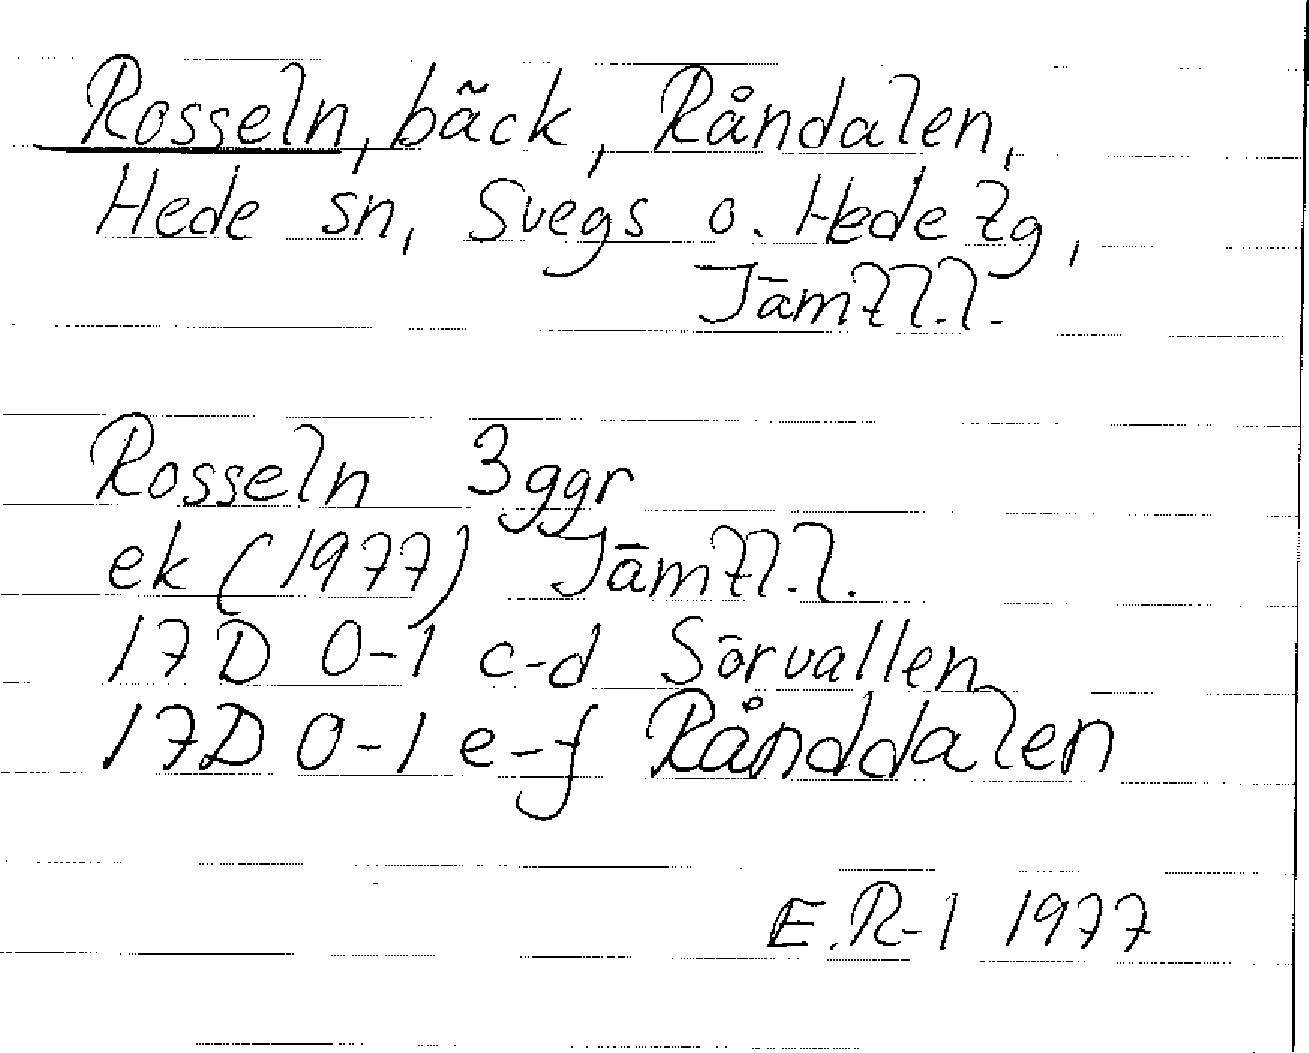 Rosseln, bäck, Råndalen,
Hede sn, Svegs o. Hede tg,
Jämtl.l.
Rosseln 3ggr
ek (1977) Jämtl.l.
17D 0-1 c-d Sörvallen
17D 0-1 e-f Rånddalen
E.R-l 1977